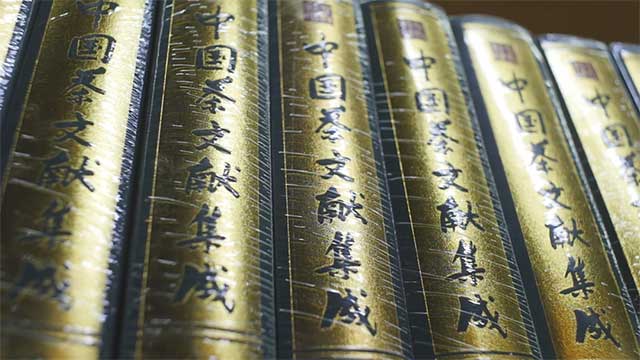 中国茶文献集成
中国茶文献集成
中国茶文献集成
中国茶文献集成
中国茶文献集成
中国茶文献集成